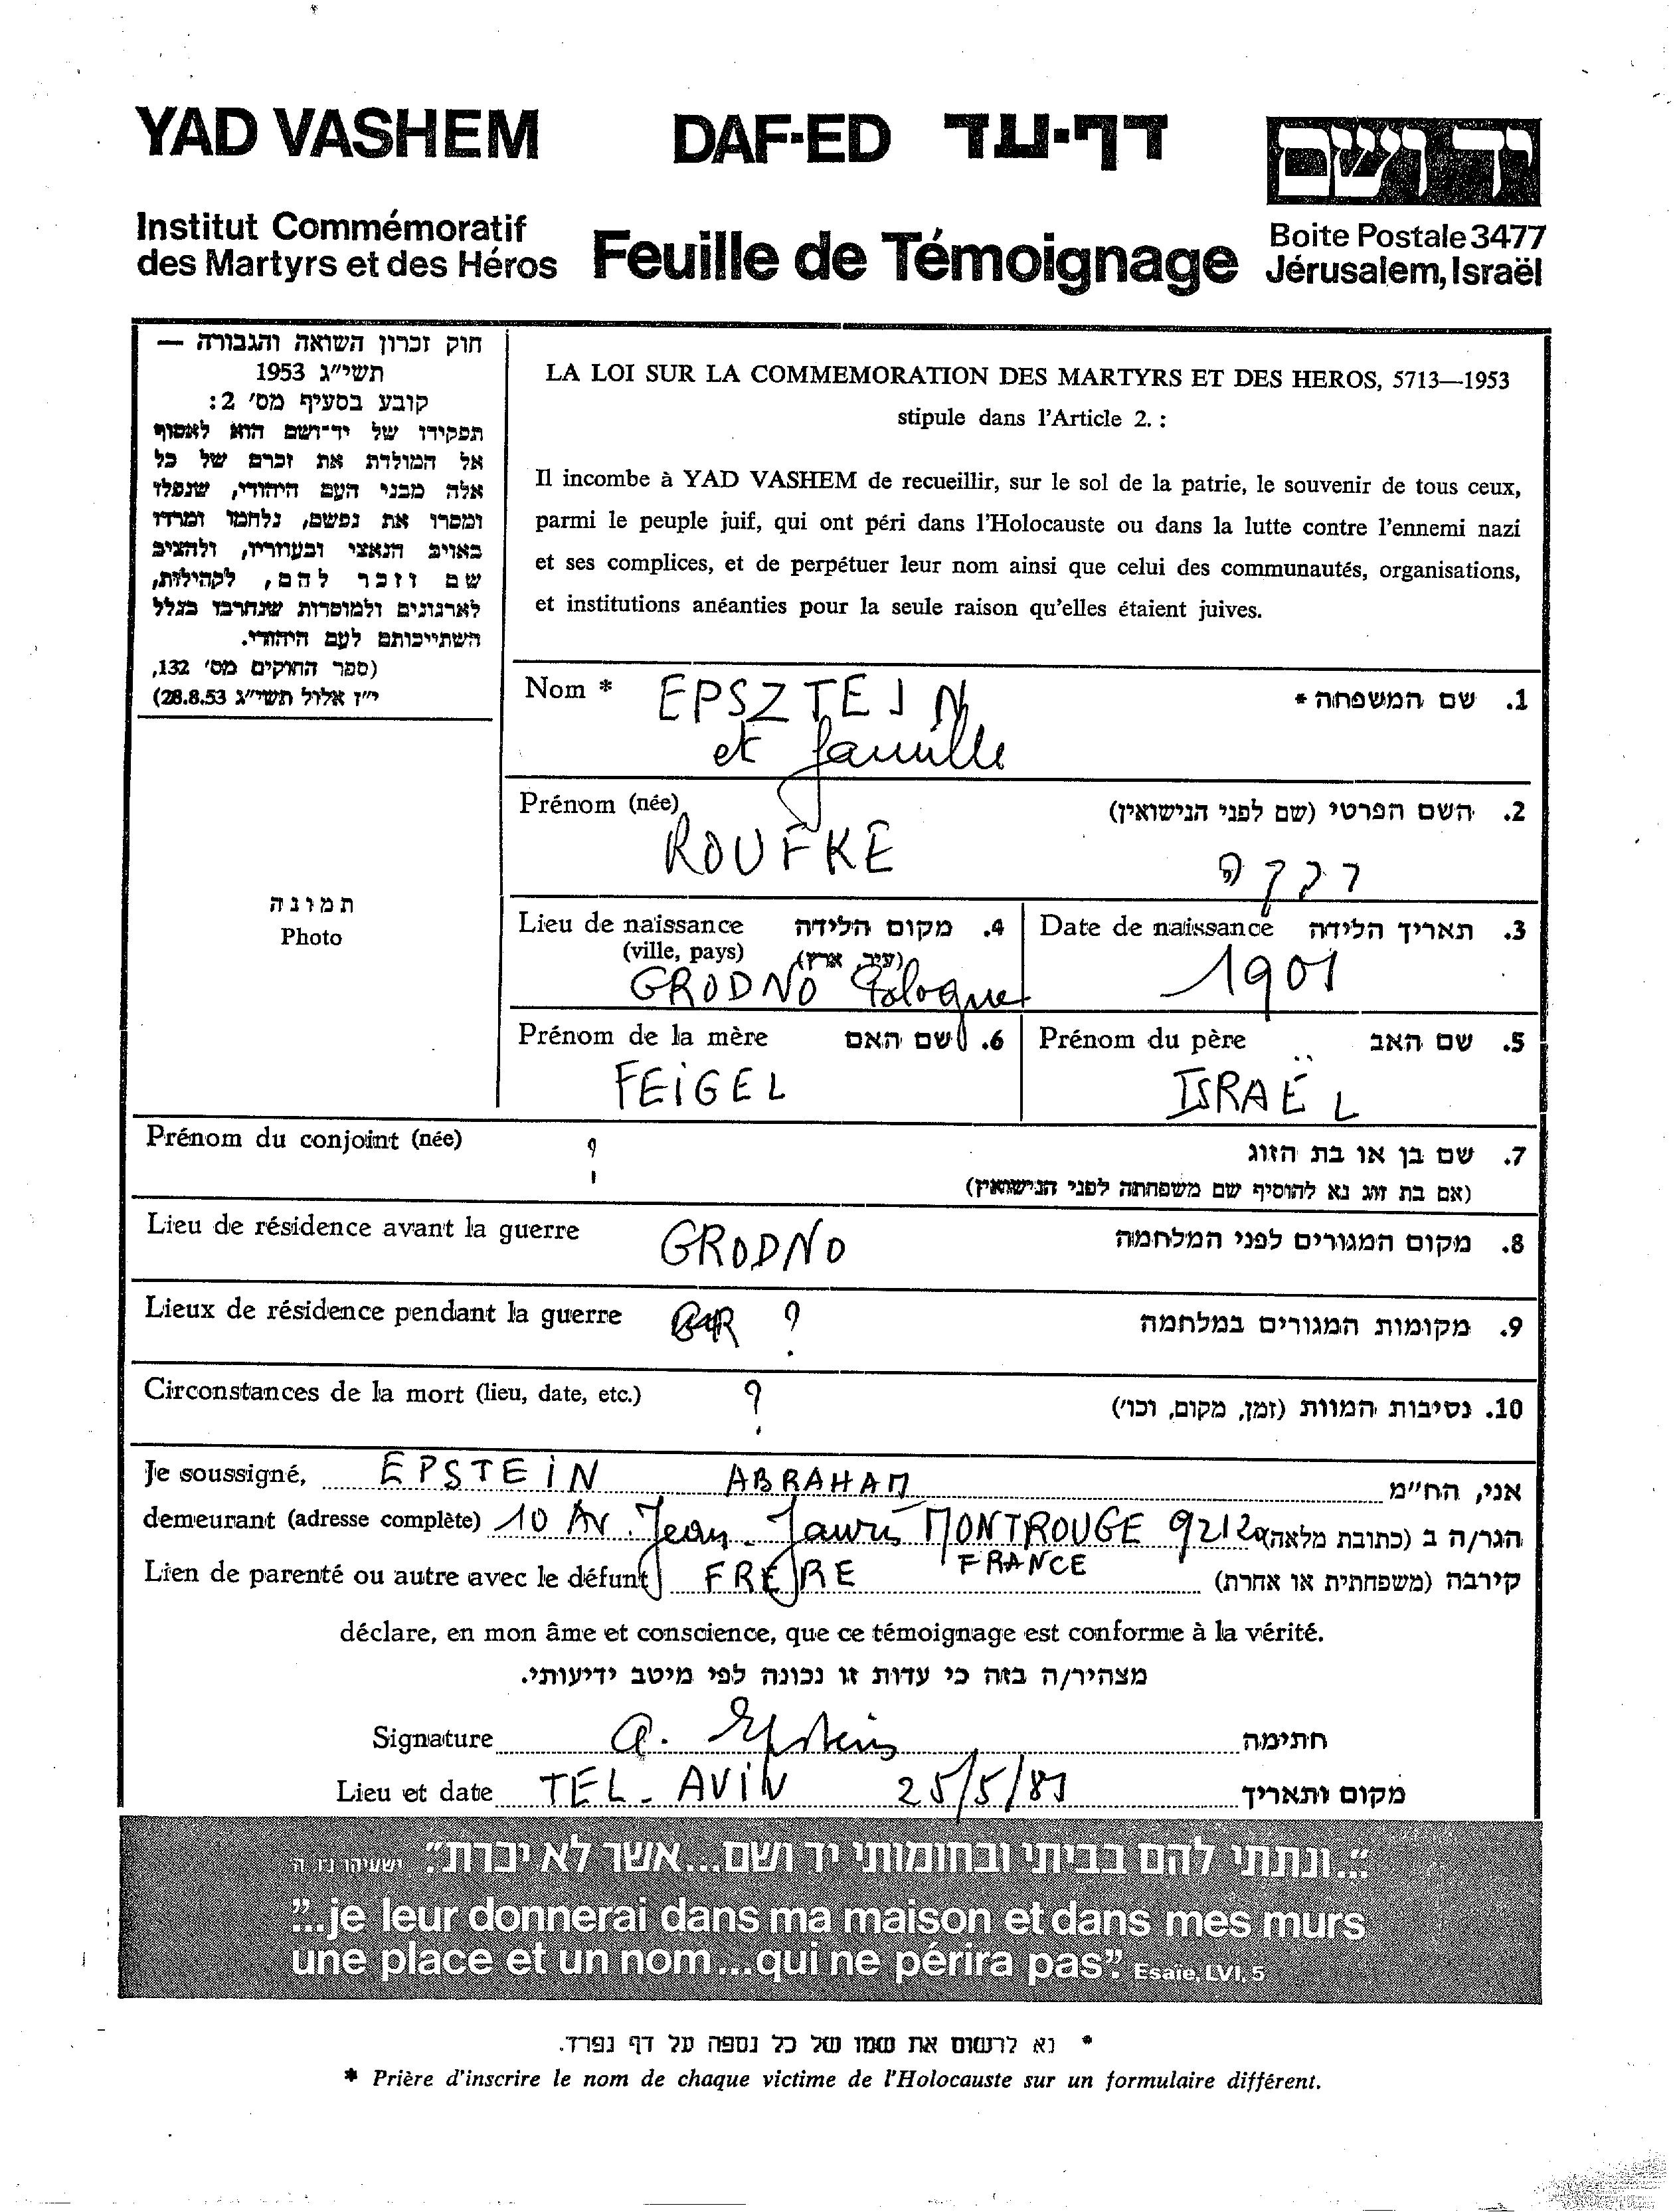 YAD VASHEM DAF-ED דף-עד יד ושם
Institut Commémoratif
des Martyrs et des Héros
Feuille de Témoignage
Boite Postale 3477
Jérusalem, Israël
חוק זכרון השואה והגבורה —
תשי״ג 1953
קובע בסעיף מס׳ 2:
תפקידו של יד־ושם הוא לאסוף
אל המולדת את זכרם של כל
אלה מבני העם היהודי, שנפלו
ומסרו את נפשם, נלחמו ומרדו
באויב הנאצי ובעוזריו, ולהציב
שם וזכר להם, לקהילות,
לארגונים ולמוסדות שנחרבו בגלל
השתייכותם לעם היהודי.
(ספר החוקים מס׳ 132,
י״ז אלול תשי״ג 28.8.53)
LA LOI SUR LA COMMEMORATION DES MARTYRS ET DES HEROS, 5713—1953
stipule dans l'Article 2. :
Il incombe à YAD VASHEM de recueillir, sur le sol de la patrie, le souvenir de tous ceux,
parmi le peuple juif, qui ont péri dans l'Holocauste ou dans la lutte contre l'ennemi nazi
et ses complices, et de perpétuer leur nom ainsi que celui des communautés, organisations,
et institutions anéanties pour la seule raison qu'elles étaient juives.
תמונה
Photo
Nom * EPSZTEJN 1. שם המשפחה *
et famille
Prénom (née) 2. השם הפרטי (שם לפני הנישואין)
ROUFKE רבקה
Lieu de naissance 4. מקום הלידה
(ville, pays) (עיר, ארץ)
GRODNO Pologne
Date de naissance 3. תאריך הלידה
1901
Prénom de la mère 6. שם האם
FEIGEL
Prénom du père 5. שם האב
ISRAËL
Prénom du conjoint (née) ? 7. שם בן או בת הזוג
(אם בת זוג נא להוסיף שם משפחתה לפני הנישואין)
Lieu de résidence avant la guerre GRODNO 8. מקום המגורים לפני המלחמה
Lieux de résidence pendant la guerre ? 9. מקומות המגורים במלחמה
Circonstances de la mort (lieu, date, etc.) ? 10. נסיבות המוות (זמן, מקום, וכו׳)
Je soussigné, EPSTEIN ABRAHAM אני, הח״מ
demeurant (adresse complète) 10 Av. Jean-Jaurès MONTROUGE 92120 הגר/ה ב (כתובת מלאה)
FRANCE
Lien de parenté ou autre avec le défunt FRERE קירבה (משפחתית או אחרת)
déclare, en mon âme et conscience, que ce témoignage est conforme à la vérité.
מצהיר/ה בזה כי עדות זו נכונה לפי מיטב ידיעותי.
Signature a. Epstein חתימה
Lieu et date TEL-AVIV 25/5/81 מקום ותאריך
"...ונתתי להם בביתי ובחומותי יד ושם...אשר לא יכרת". ישעיהו נו, ה
"...je leur donnerai dans ma maison et dans mes murs
une place et un nom...qui ne périra pas". Esaïe, LVI, 5
* נא לרשום את שמו של כל נספה על דף נפרד.
* Prière d'inscrire le nom de chaque victime de l'Holocauste sur un formulaire différent.